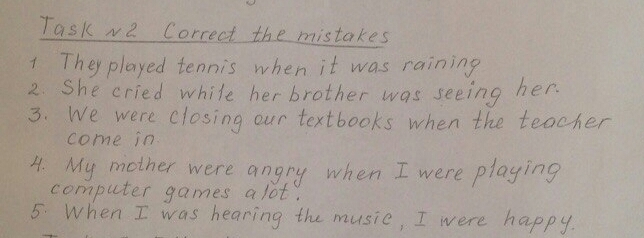 Task N2 Correct the mistakes
1 They played tennis when it was raining
2. She cried while her brother was seeing her.
3. We were closing our textbooks when the teacher
come in
4. My mother were angry when I were playing
computer games a lot.
5. When I was hearing the music, I were happy.